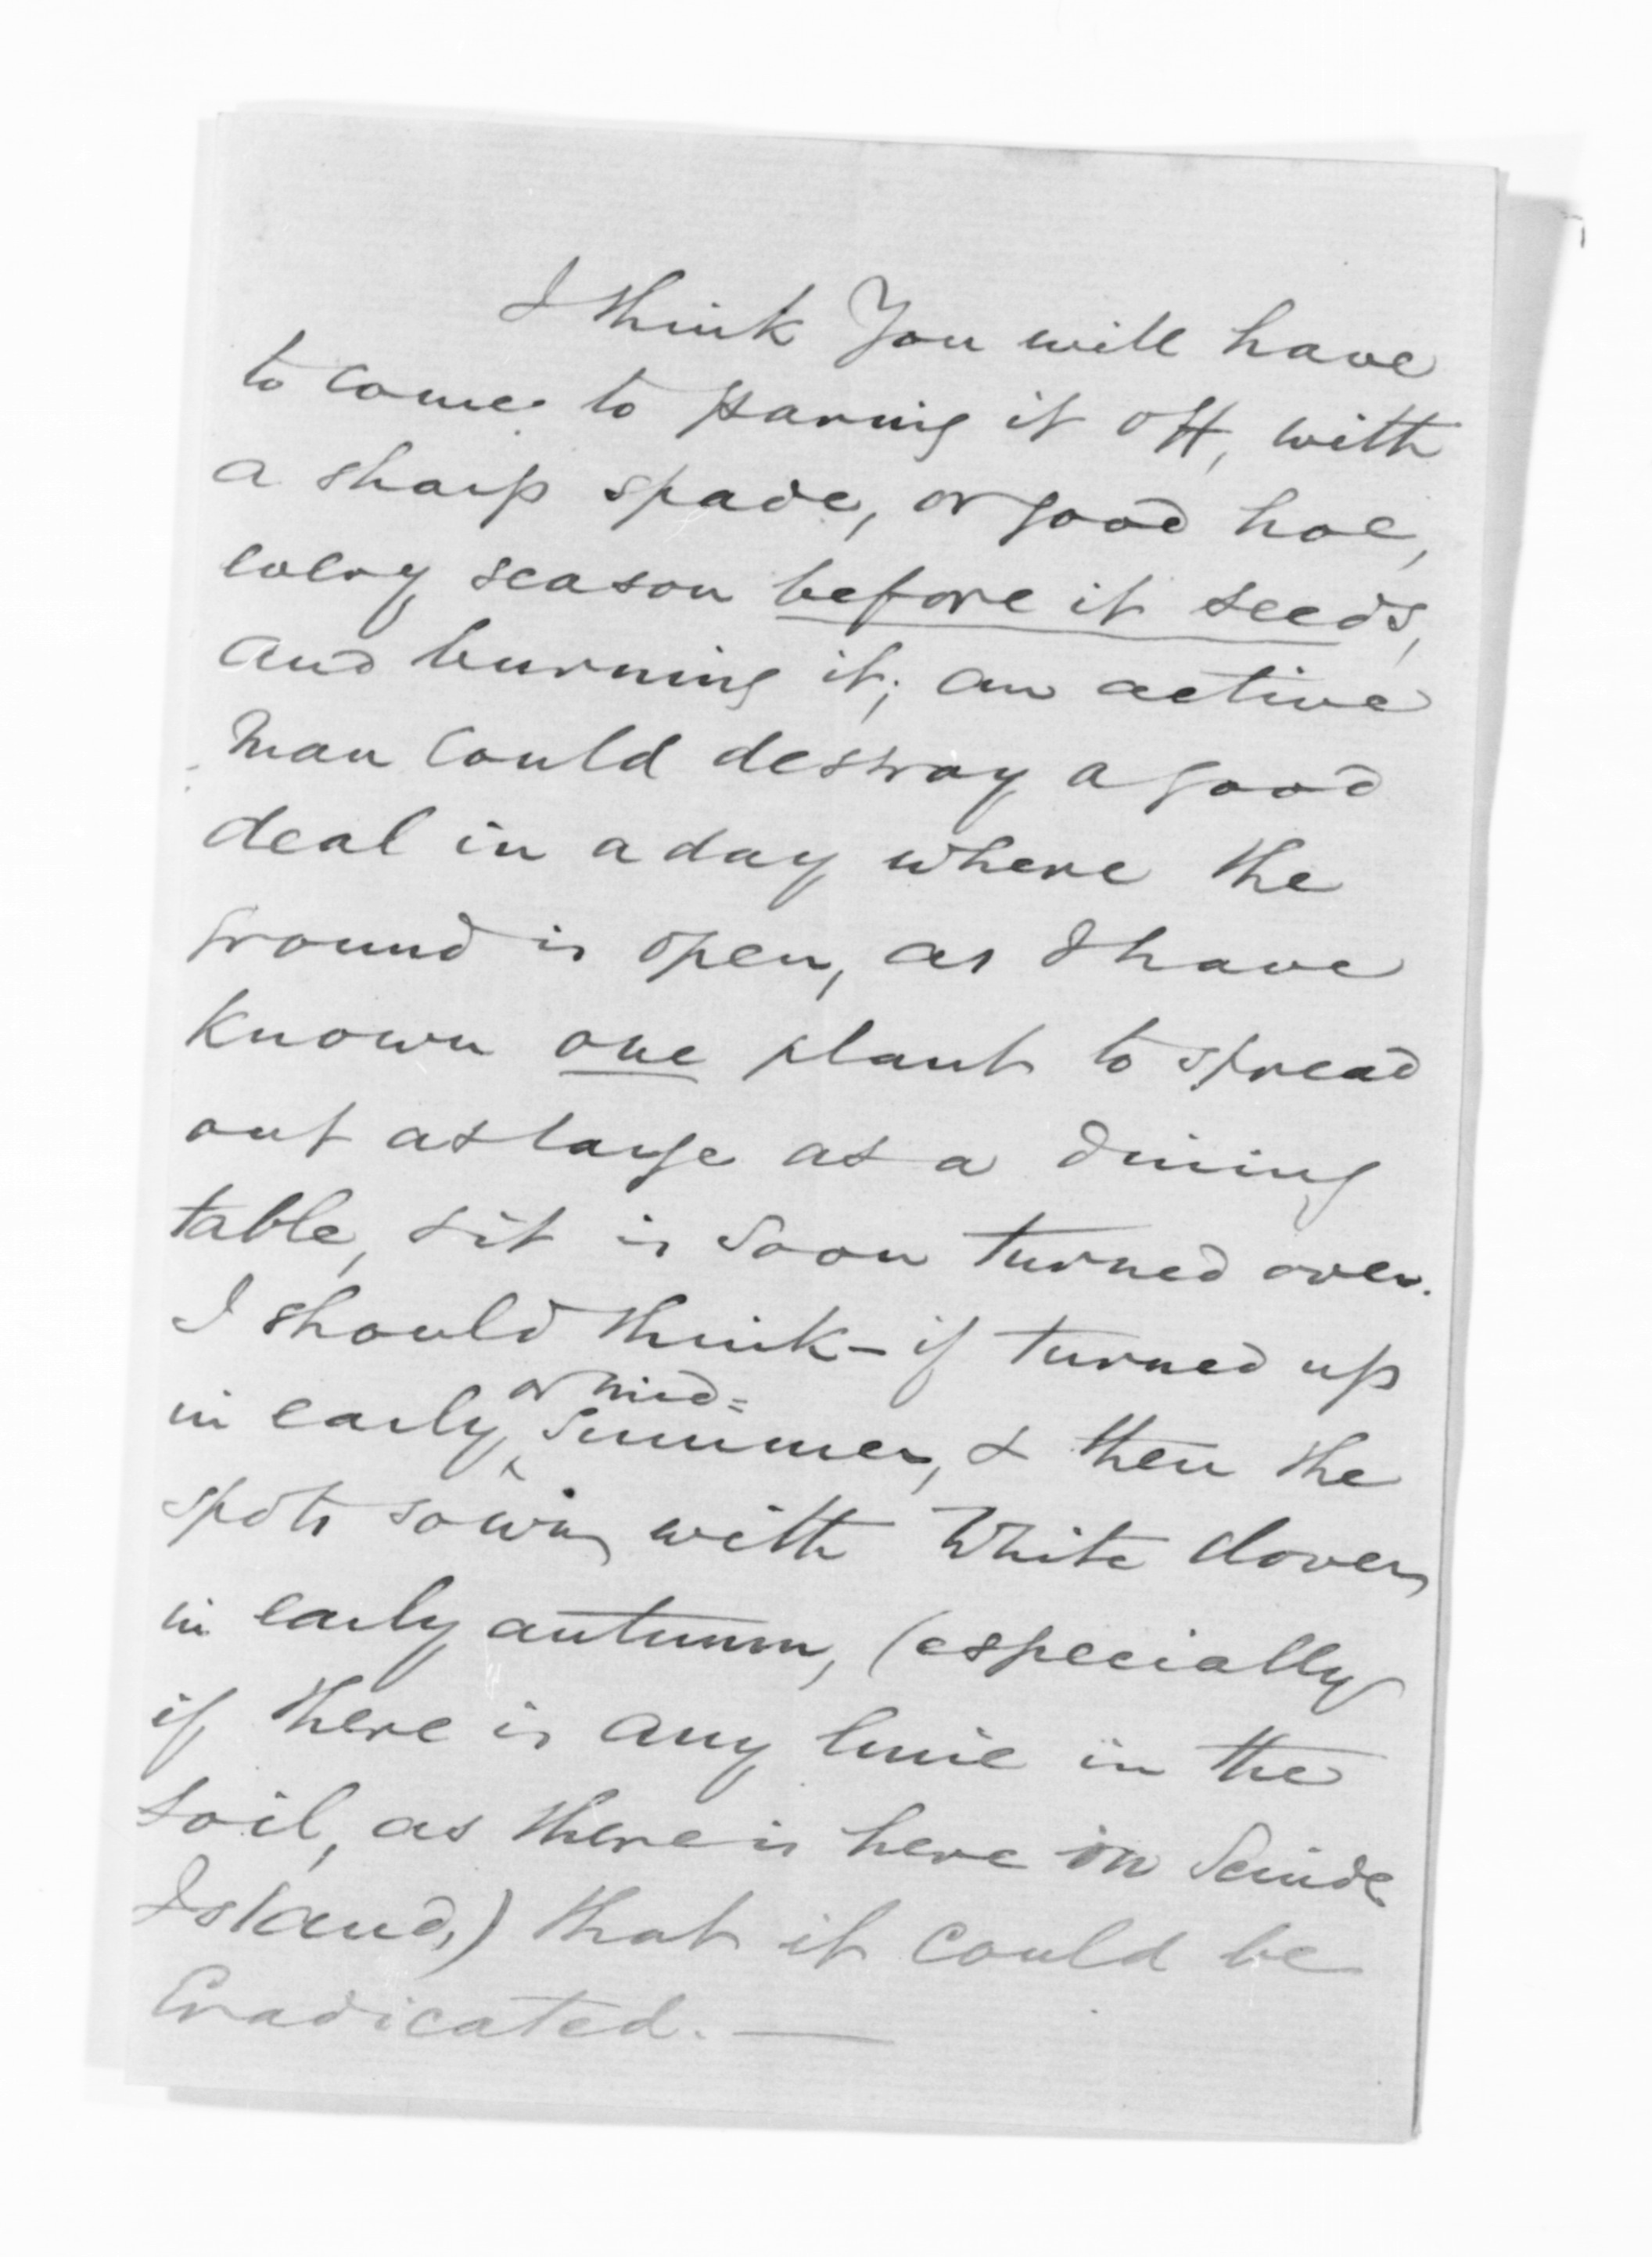 I think You will have
to come to paring it off, with
a sharp spade, or good hoe,
every season before it seeds,
and burning it; an active
man could destroy a good
deal in a day where the
ground is open, as I have
known one plant to spread
out as large as a dining
table, & it is soon turned over.
I should think – if turned up
in early or mid= summer, & then the
spots sown with White clover
in early autumn, (especially
if there is any lime in the
soil, as there is here in Scinde
Island,) that it could be
Eradicated. —